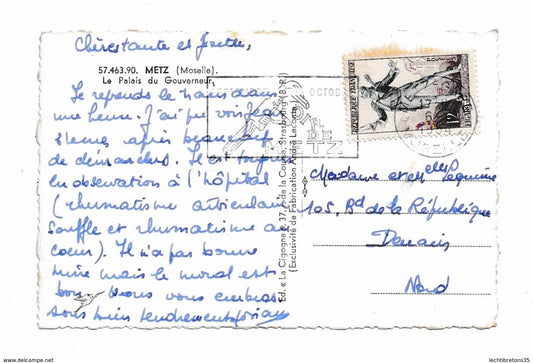 Chère tante et Josette,
57.463.90. METZ (Moselle).
Le Palais du Gouverneur.
Je reprends le train dans
une heure. J'ai pu voir Jean
après beaucoup
de démarches. Il est toujours
en observation à l'hôpital
(rhumatisme articulaire
souffle et rhumatisme au
coeur). Il n'a pas bonne
mine mais le moral est
bon. Nous vous embras
sons bien tendrement
Ed. « La Cigogne », 37, r. de la Course, Strasbourg (B.-R.)
(Exclusivité de Fabrication André Leconte)
OCTOB
DE
TZ
REPUBLIQUE FRANÇAISE
POSTES
12F
MOSELLE
Madame et Melle
105, Bd de la République
Denain
Nord
https://www.delcampe.net
lechtibretons@yahoo.com